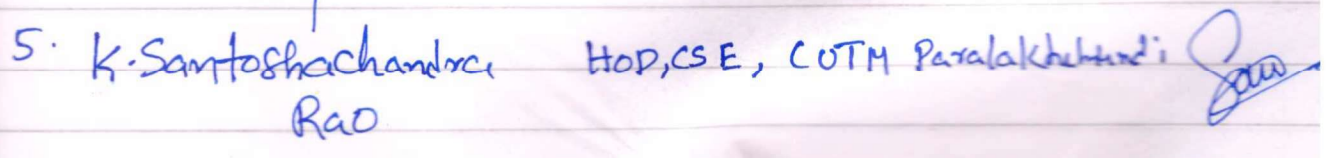 5. K.Santoshachandra HOD,CSE, CUTM Paralakhemundi
Rao